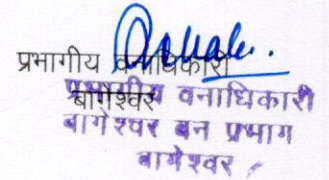 प्रभागीय वनाधिकारी
बागेश्वर
प्रभागीय वनाधिकारी
बागेश्वर बन प्रभाग
बागेश्वर